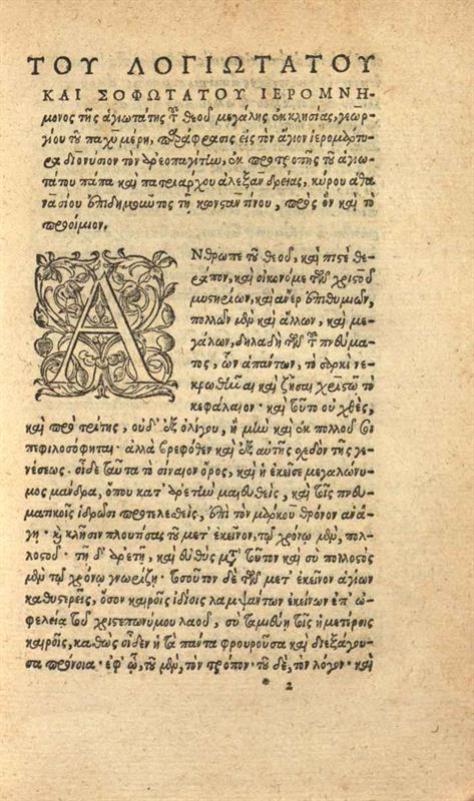 ΤΟΥ ΛΟΓΙΩΤΑΤΟΥ
ΚΑΙ ΣΟΦΩΤΑΤΟΥ ΙΕΡΟΜΝΗ-
μονος τῆς ἁγιωτάτης τοῦ θεοῦ μεγάλης ἐκκλησίας, γεωρ-
γίου τοῦ παχυμέρη, παράφρασις εἰς τὸν ἅγιον ἱερομάρτυ-
ρα διονύσιον τὸν ἀρεοπαγίτην, ἐκ προτροπῆς τοῦ ἁγιω-
τάτου πάπα καὶ πατριάρχου ἀλεξανδρείας, κύρου ἀθα
νασίου ἐπιδημοῦντος τῇ κωνσταντίνου, πρὸς ὃν καὶ τὸ
προοίμιον.
ΑΝθρωπε τοῦ θεοῦ, καὶ πιστὲ θε-
ράπον, καὶ οἰκονόμε τῶν χριστοῦ
μυστηρίων, καὶ ἄνερ ἐπιθυμιῶν,
πολλῶν μὲν καὶ ἄλλων, καὶ με-
γάλων, δηλαδὴ τῶν τοῦ πνεύμα-
τος, ὧν ἁπάντων, τὸ σαρκὶ νε-
κρωθῆναι καὶ ζῆσαι χριστῷ τὸ
κεφάλαιον· καὶ τοῦτο οὐ χθὲς,
καὶ πρὸ τρίτης, οὐδ' ἐξ ὀλίγου, ἢ μὴν καὶ ἐκ πολλοῦ σοι
πεφιλοσόφηται· ἀλλὰ βρεφόθεν καὶ ἐξ αὐτῆς σχεδὸν τῆς γε-
νέσεως. οἶδε ταῦτα τὸ σίναιον ὄρος, καὶ ἡ ἐκεῖσε μεγαλώνυ-
μος μάνδρα, ὅπου κατ' ἀρετὴν μαιευθεὶς, καὶ τοῖς πνευ-
ματικοῖς ἱδρῶσι προτελεσθεὶς, ἐπὶ τὸν μάρκου θρόνον ἀνά-
γῃ· κλῆσιν πλουτήσας τοῦ μετ' ἐκεῖνον, τῷ χρόνῳ μὲν, πολ-
λοστοῦ· τῇ δ' ἀρετῇ, καὶ εὐθὺς μετ' αὐτὸν καὶ σὺ πολλοστὸς
μὲν τῷ χρόνῳ γνωρίζῃ· τοσοῦτον δὲ τῶν μετ' ἐκεῖνον ἁγίων
καθυστερεῖς, ὅσον καιροῖς ἰδίοις λαμψάντων ἐκείνων ἐπ' ὠ-
φελείᾳ τοῦ χριστεπωνύμου λαοῦ, σὺ ταμιευθῇ τοῖς ἡμετέροις
καιροῖς, καθὼς οἶδεν ἡ τὰ πάντα φρουροῦσα καὶ διεξάγου-
σα πρόνοια· ἐφ' ᾧ, τοῦ μὲν, τὸν τρόπον· τοῦ δὲ, τὸν λόγον· καὶ
* 2